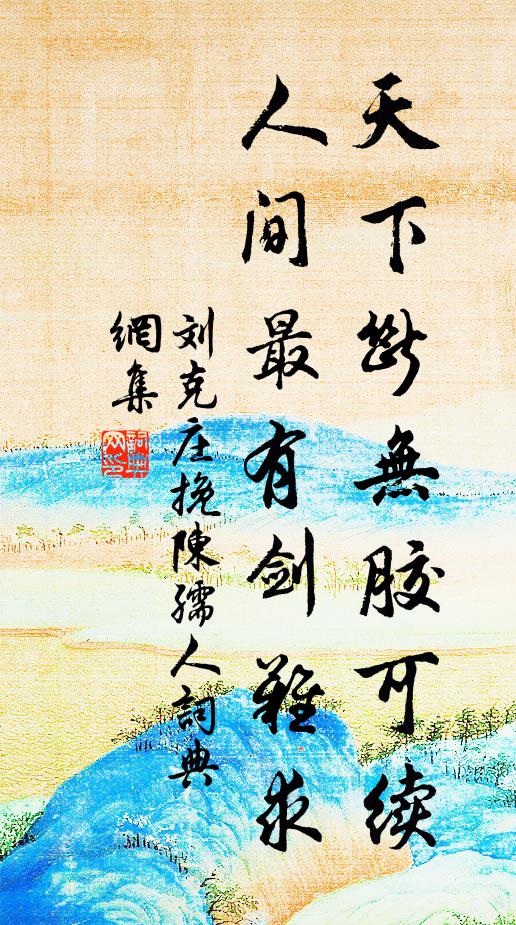 天下斷無膠可續
人间最有剑難求
刘克庄挽陳孺人詞典
網集